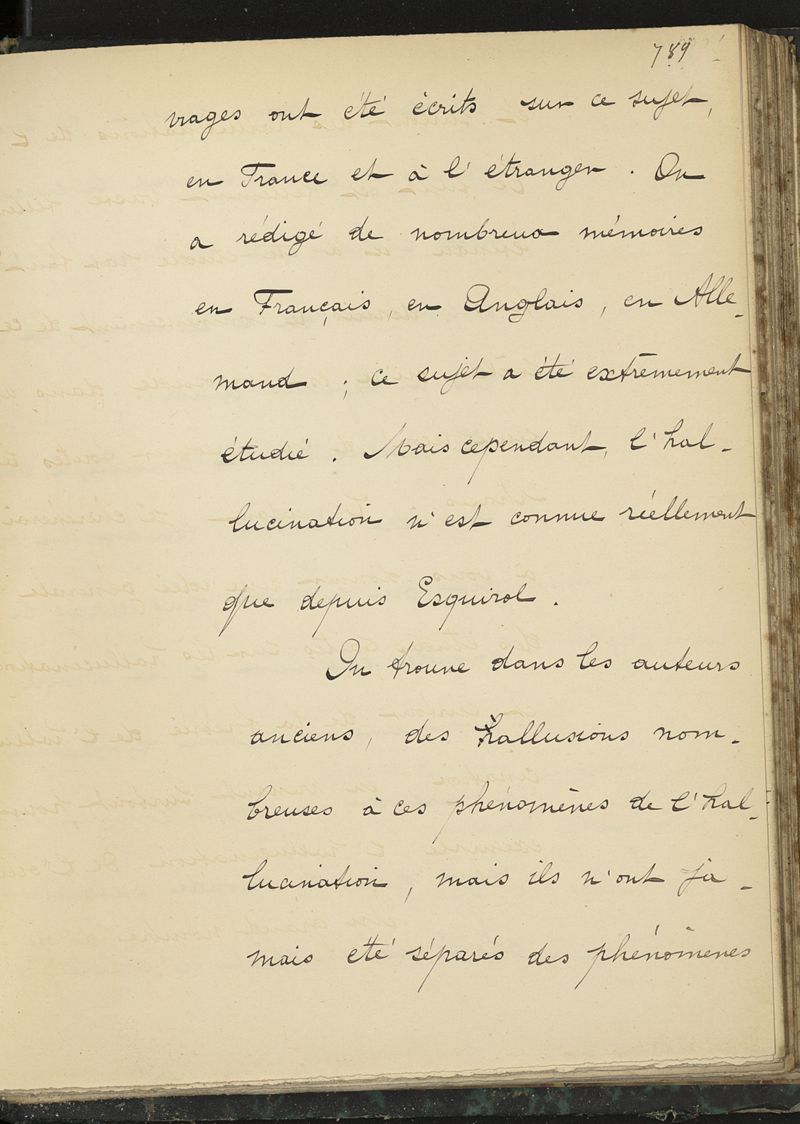 789
vrages ont été écrits sur ce sujet,
en France et à l'étranger. On
a rédigé de nombreux mémoires
en Français, en Anglais, en Alle-
mand ; ce sujet a été extrêmement
étudié. Mais cependant, l'hal-
lucination n'est connue réellement
que depuis Esquirol.
On trouve dans les auteurs
anciens, des hallusions nom-
breuses à ces phénomènes de l'hal-
lucination, mais ils n'ont ja-
mais été séparés des phénomènes